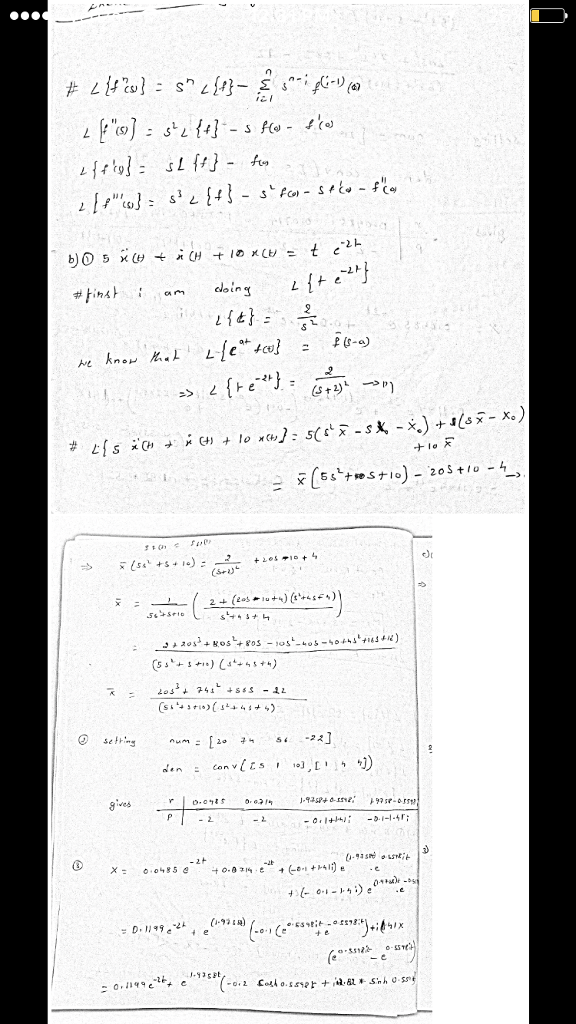 # L{fⁿ(s)} = sⁿ L{f} - Σ_{i=1}^{n} s^{n-i} f^{(i-1)}(0)
L{f''(s)} = s² L{f} - s f(0) - f'(0)
L{f'(s)} = sL{f} - f(0)
L{f'''(s)} = s³ L{f} - s² f(0) - s f'(0) - f''(0)
b) ① 5 ẍ(t) + ẋ(t) + 10 x(t) = t e^{-2t}
# first i am doing L{t e^{-2t}}
L{t} = 2/s²
we know that L{e^{at} f(t)} = f̄(s-a)
⇒ L{t e^{-2t}} = 2/(s+2)² → (1)
# L{5 ẍ(t) + ẋ(t) + 10 x(t)} = 5(s² x̄ - s x₀ - ẋ₀) + 1(s x̄ - x₀)
+10 x̄
= x̄ (5s² + s + 10) - 20s + 10 - 4 →
⇒ x̄ (5s² + s + 10) = 2/(s+2)² + 20s - 10 + 4
x̄ = 1/(5s²+s+10) ( (2 + (20s - 10 + 4)(s²+4s+4)) / (s²+4s+4) )
= (2 + 20s³ + 80s² + 80s - 10s² - 40s - 40 + 4s² + 16s + 16) / ((5s² + s + 10)(s² + 4s + 4))
x̄ = (20s³ + 74s² + 56s - 22) / ((5s² + s + 10)(s² + 4s + 4))
② setting num = [20 74 56 -22]
den = conv([5 1 10], [1 4 4])
gives r | 0.0485 0.0714 1.9758+0.5598i 1.9758-0.5598i
p | -2 -2 -0.1+1.41i -0.1-1.41i
③ x = 0.0485 e^{-2t} + 0.0714 e^{-2t} + (-0.1 + 1.41i) e^{(1.9758)t} · e^{0.5598it}
+ (-0.1 - 1.41i) e^{(1.9758)t} · e
= 0.1199 e^{-2t} + e^{(1.9758)t} (-0.1 (e^{0.5598it} + e^{-0.5598it}) + i 1.41 x
(e^{0.5598it} - e^{-0.5598it})
= 0.1199 e^{-2t} + e^{1.9758t} (-0.2 cosh 0.5598t + i 2.82 * sinh 0.559